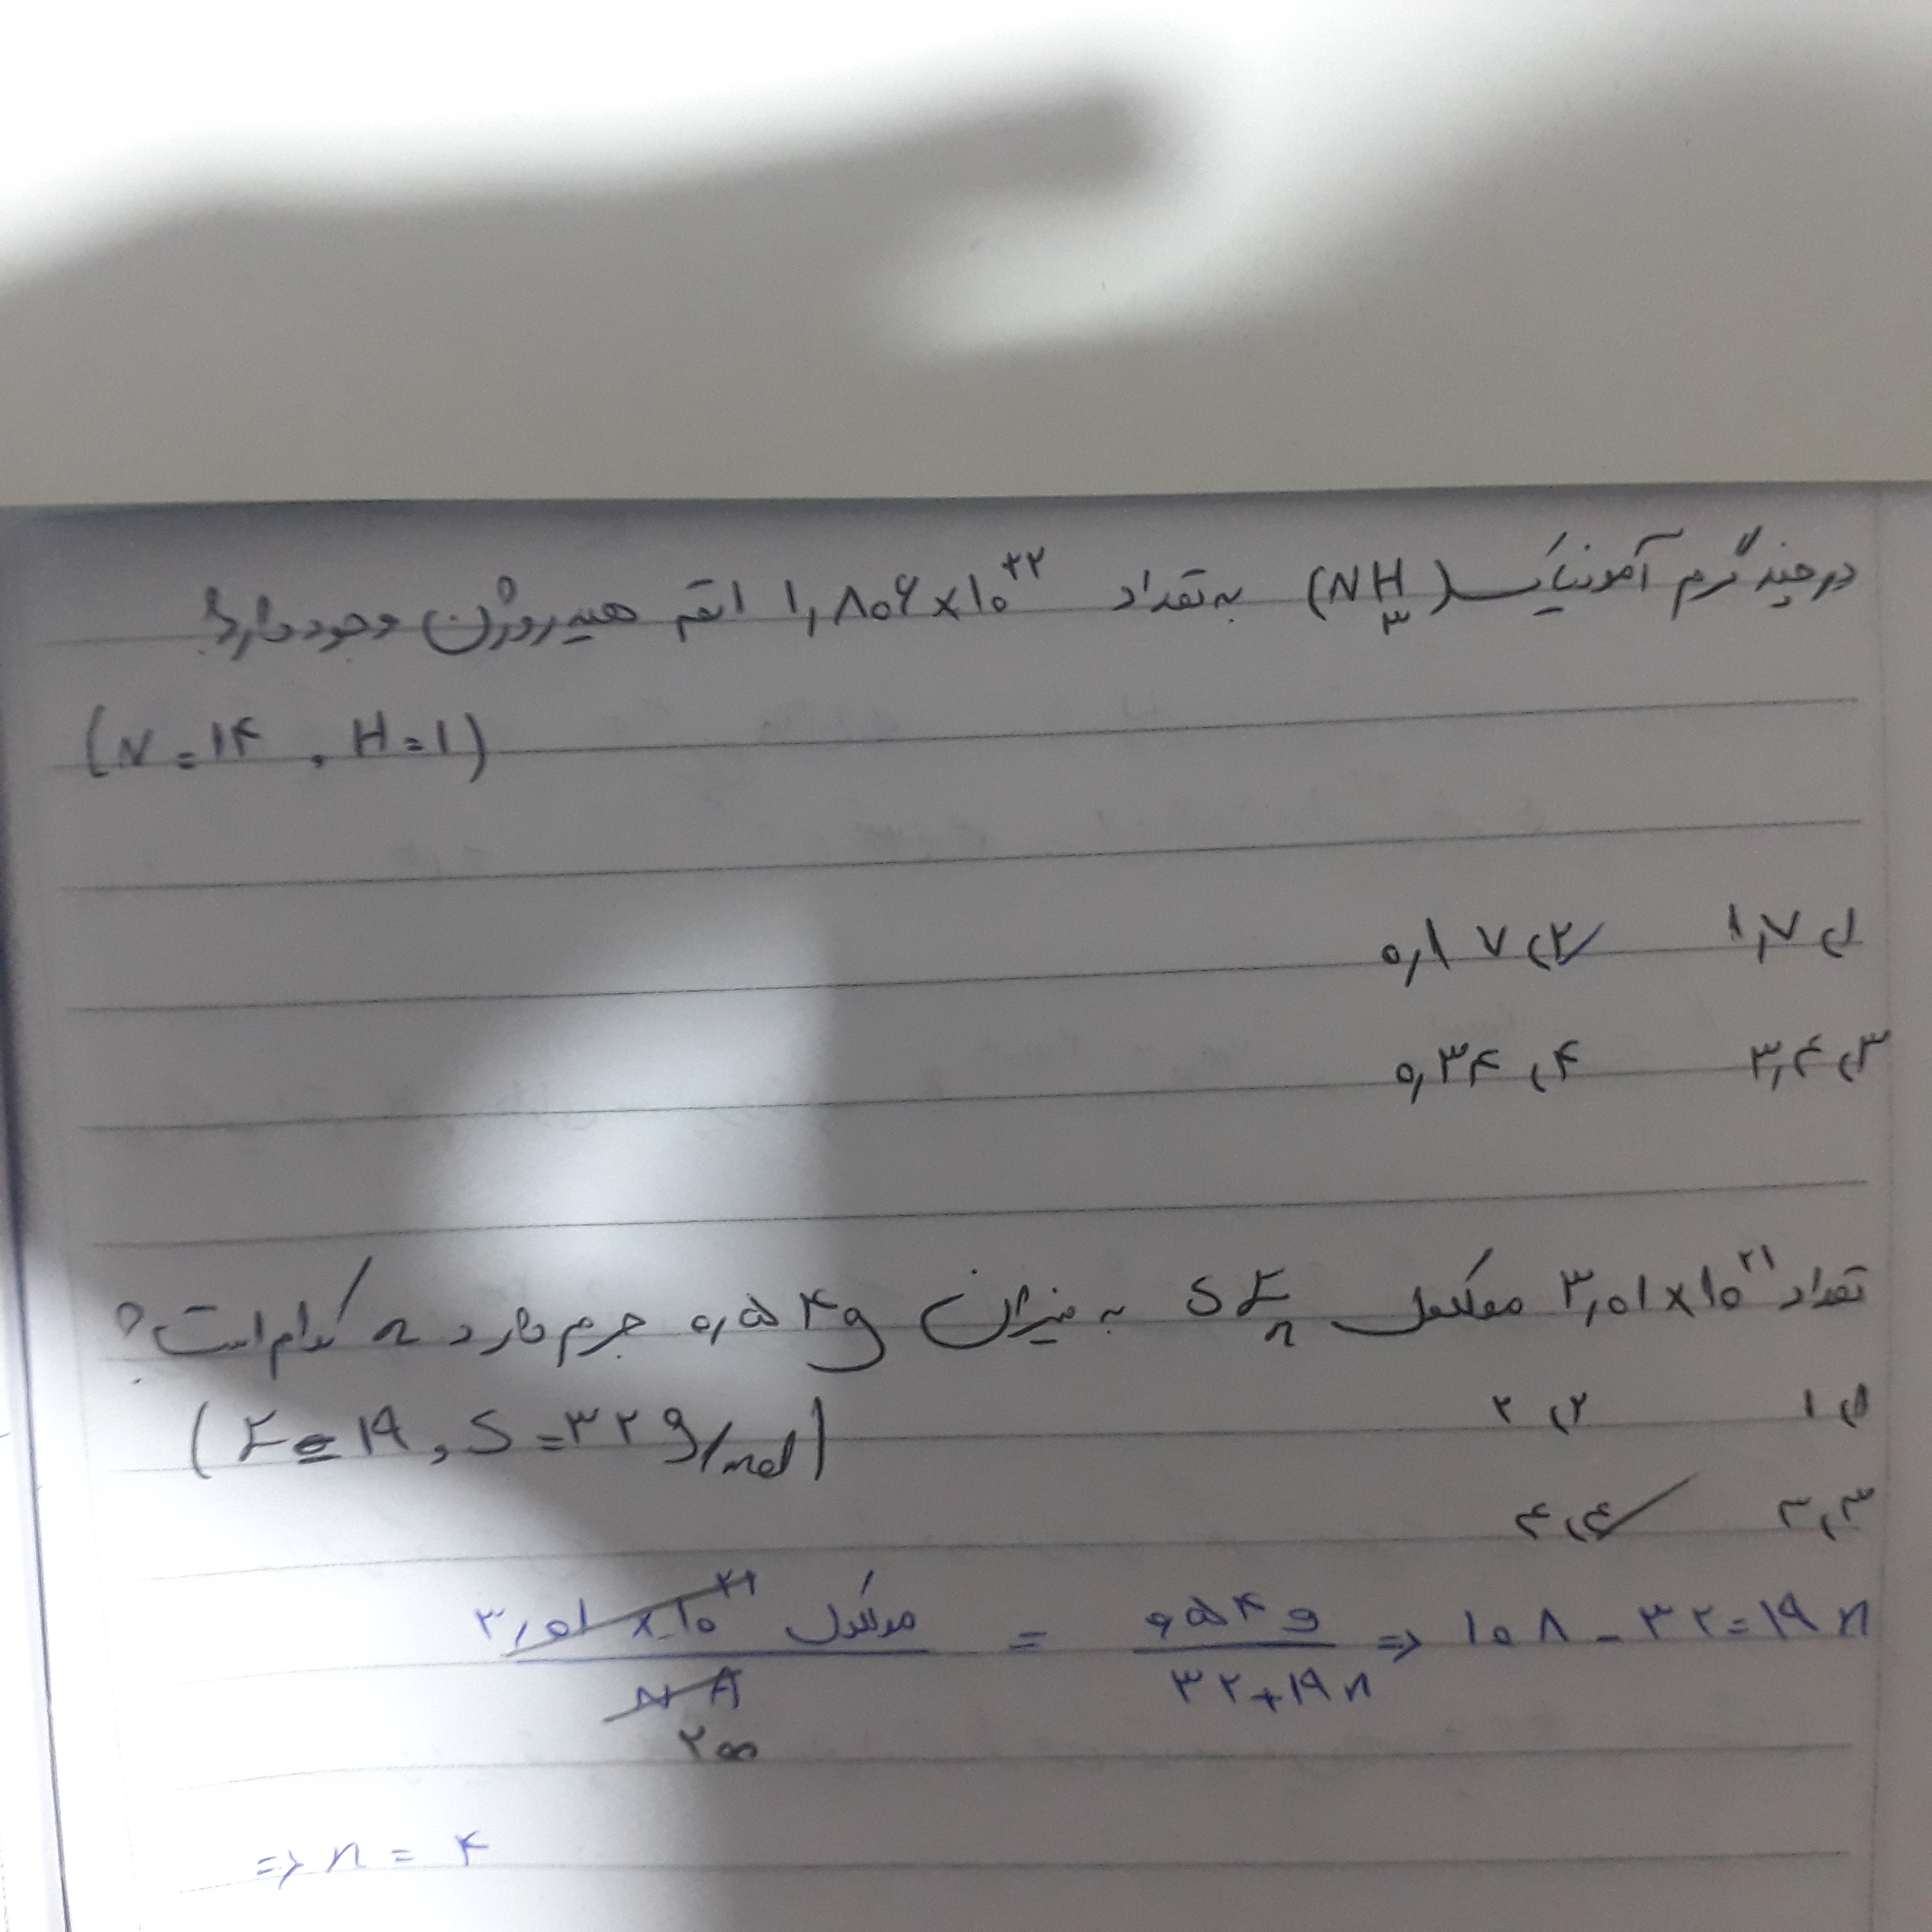 در چند گرم آمونیاک (NH₃) به تعداد ۱٫۸۰۶×۱۰^۲۲ اتم هیدروژن وجود دارد؟
(N = ۱۴ , H = ۱)
۱) ۱٫۷ ۲) ۰٫۱۷
۳) ۳٫۴ ۴) ۰٫۳۴
تعداد ۳٫۰۱×۱۰^۲۱ مولکول SFₙ به میزان ۰٫۵۴g جرم دارد n کدام است؟
۱) ۱ ۲) ۲ (F = ۱۹ , S = ۳۲ g/mol)
۳) ۳ ۴) ۴
۳٫۰۱×۱۰^۲۱ مولکول / NA ۲۰۰ = ۰٫۵۴g / ۳۲+۱۹n ⇒ ۱۰۸ - ۳۲ = ۱۹n
⇒ n = ۴